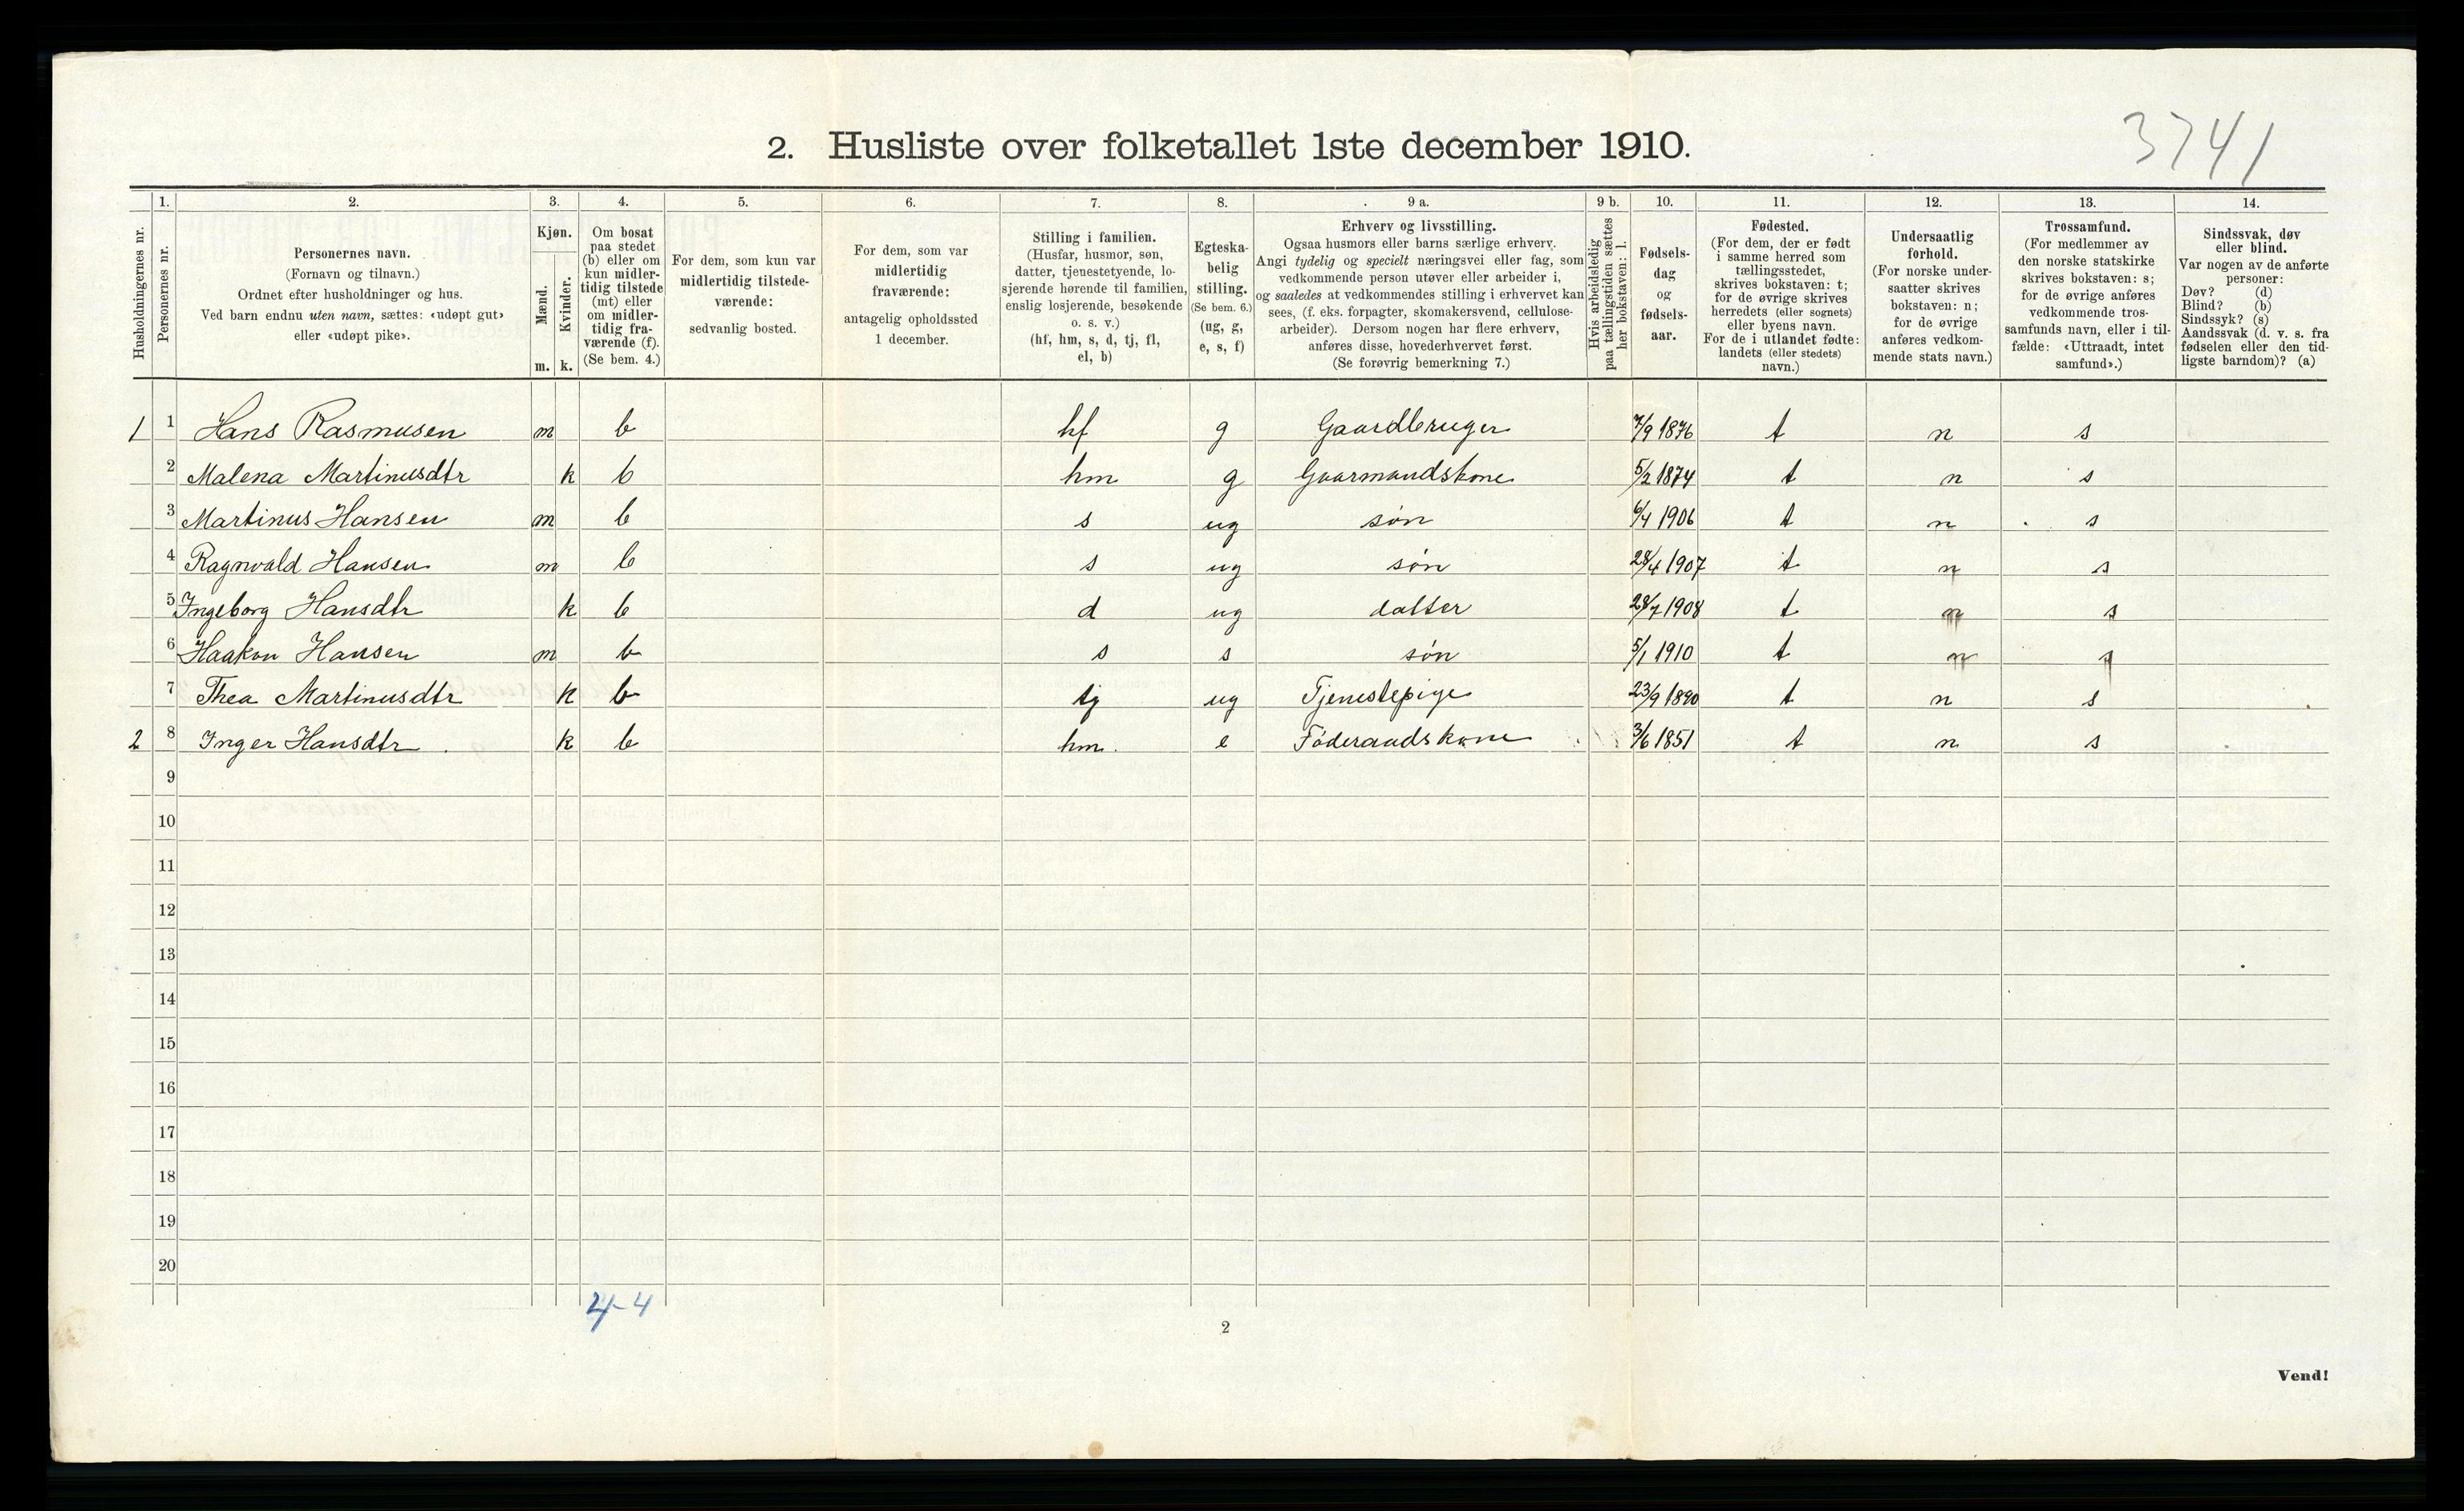 3741
2. Husliste over folketallet 1ste december 1910.
1. 2. 3. 4. 5. 6. 7. 8. 9 a. 9 b. 10. 11. 12. 13. 14.
Husholdningernes nr.
Personernes nr.
Personernes navn.
(Fornavn og tilnavn.)
Ordnet efter husholdninger og hus.
Ved barn endnu uten navn, sættes: «udøpt gut»
eller «udøpt pike».
Kjøn.
Mænd.
m.
Kvinder.
k.
Om bosat
paa stedet
(b) eller om
kun midler-
tidig tilstede
(mt) eller
om midler-
tidig fra-
værende (f).
(Se bem. 4.)
For dem, som kun var
midlertidig tilstede-
værende:
sedvanlig bosted.
For dem, som var
midlertidig
fraværende:
antagelig opholdssted
1 december.
Stilling i familien.
(Husfar, husmor, søn,
datter, tjenestetyende, lo-
sjerende hørende til familien,
enslig losjerende, besøkende
o. s. v.)
(hf, hm, s, d, tj, fl,
el, b)
Egteska-
belig
stilling.
(Se bem. 6.)
(ug, g,
e, s, f)
Erhverv og livsstilling.
Ogsaa husmors eller barns særlige erhverv.
Angi tydelig og specielt næringsvei eller fag, som
vedkommende person utøver eller arbeider i,
og saaledes at vedkommendes stilling i erhvervet kan
sees, (f. eks. forpagter, skomakersvend, cellulose-
arbeider). Dersom nogen har flere erhverv,
anføres disse, hovederhvervet først.
(Se forøvrig bemerkning 7.)
Hvis arbeidsledig
paa tællingstiden sættes
her bokstaven: l.
Fødsels-
dag
og
fødsels-
aar.
Fødested.
(For dem, der er født
i samme herred som
tællingsstedet,
skrives bokstaven: t;
for de øvrige skrives
herredets (eller sognets)
eller byens navn.
For de i utlandet fødte:
landets (eller stedets)
navn.)
Undersaatlig
forhold.
(For norske under-
saatter skrives
bokstaven: n;
for de øvrige
anføres vedkom-
mende stats navn.)
Trossamfund.
(For medlemmer av
den norske statskirke
skrives bokstaven: s;
for de øvrige anføres
vedkommende tros-
samfunds navn, eller i til-
fælde: «Uttraadt, intet
samfund».)
Sindssvak, døv
eller blind.
Var nogen av de anførte
personer:
Døv? (d)
Blind? (b)
Sindssyk? (s)
Aandssvak (d. v. s. fra
fødselen eller den tid-
ligste barndom)? (a)
1 1 Hans Rasmusen m b hf g Gaardbruger 7/9 1876 t n s
2 Malena Martinusdtr k b hm g Gaarmandskone 5/2 1874 t n s
3 Martinus Hansen m b s ug søn 6/4 1906 t n s
4 Ragnvald Hansen m b s ug søn 28/4 1907 t n s
5 Ingeborg Hansdtr k b d ug datter 28/7 1908 t n s
6 Haakon Hansen m b s s søn 5/1 1910 t n s
7 Thea Martinusdtr k b tj ug Tjenestepige 23/9 1890 t n s
2 8 Inger Hansdtr k b hm e Føderaadskone 3/6 1851 t n s
9
10
11
12
13
14
15
16
17
18
19
20
4-4
2
Vend!